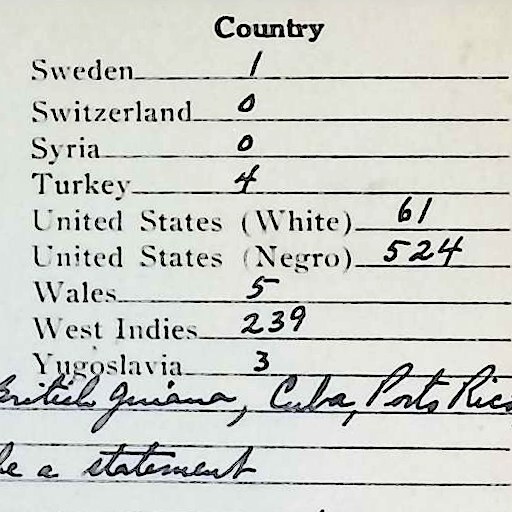 Country
Sweden 1
Switzerland 0
Syria 0
Turkey 4
United States (White) 61
United States (Negro) 524
Wales 5
West Indies 239
Yugoslavia 3
British Guiana, Cuba, Porto Rico,
be a statement